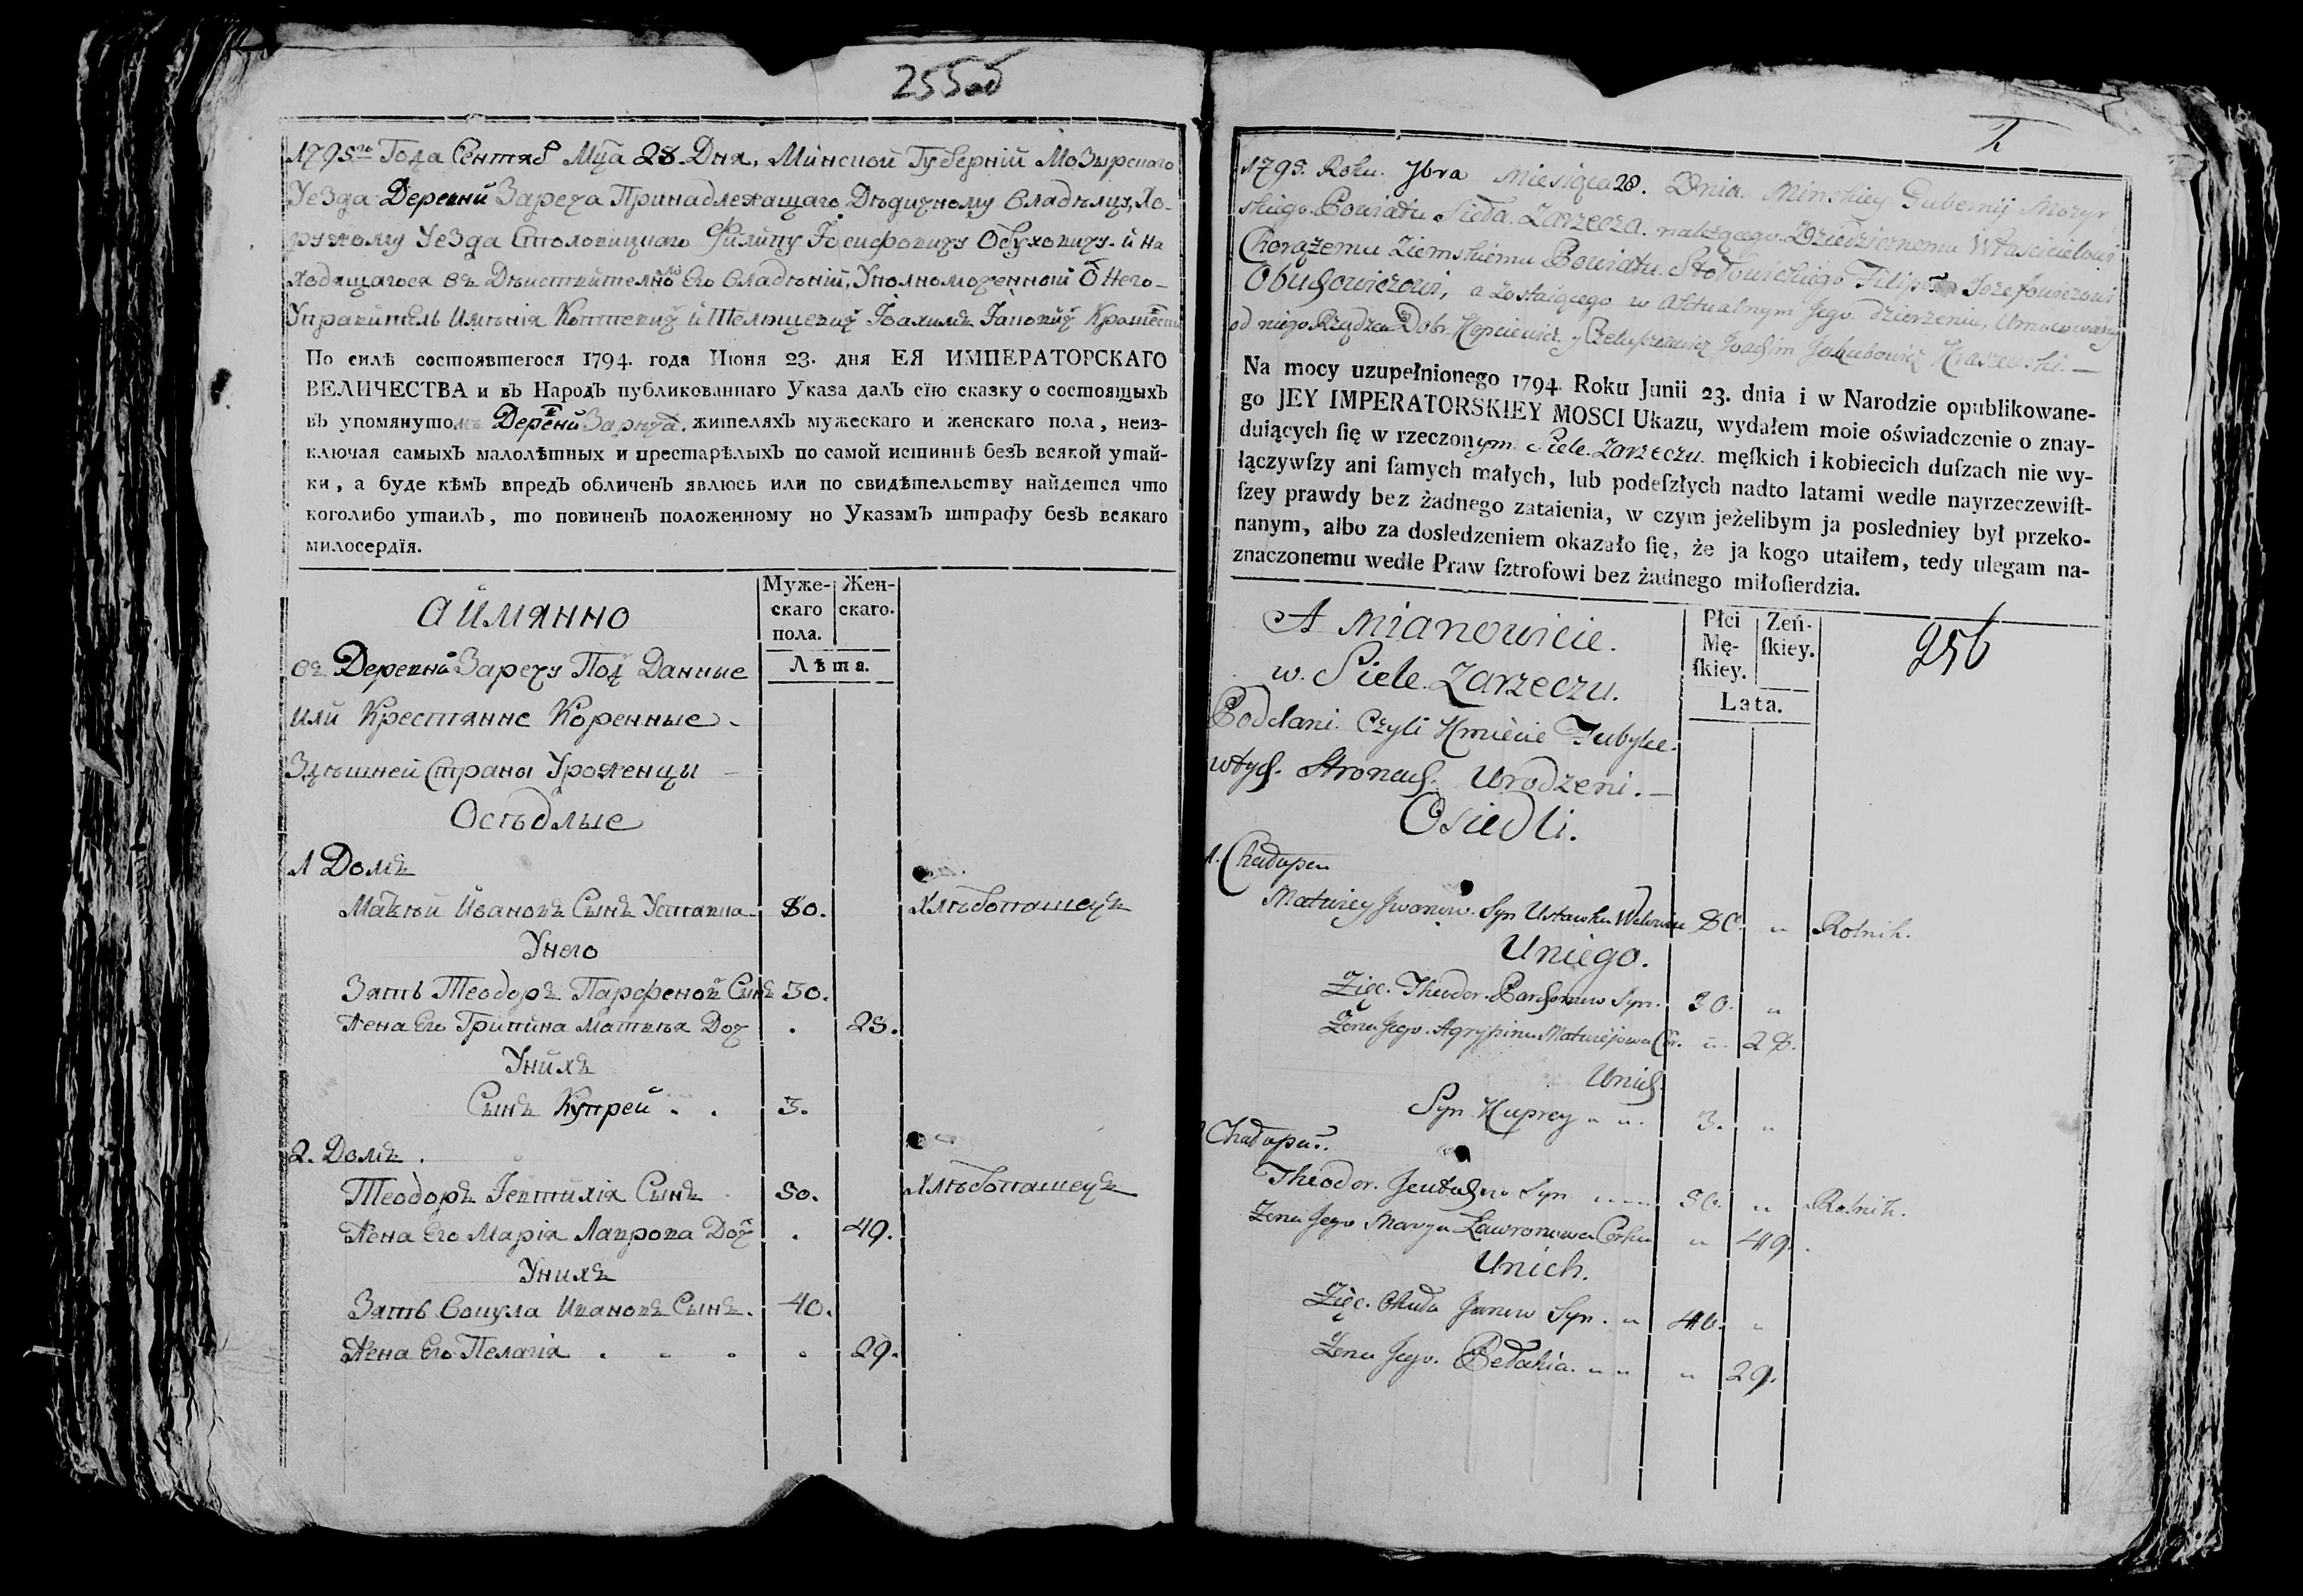 255об
1795го Года Сентяб Мца 28 Дня, Минской Губерній Мозырскаго
Уезда Деревни Заречa Принадлежащаго Дѣдичному Владѣлцу, Хо-
ружому Уезда Столовицкаго Филипу Іосифовичу Обуховичу. и на
ходящагося въ Дѣиствително Его Владѣній, Уполномоченный Ѿ Него
Управитель Имѣнія Коптевич и Шелющевич Іоахимъ
По силѣ состоявшегося 1794. года Июня 23. дня ЕЯ ИМПЕРАТОРСКАГО
ВЕЛИЧЕСТВА и въ Народъ публикованнаго Указа далъ сїю сказку о состоящыхъ
въ упомянутомъ Деревни Зареча. жителяхъ мужескаго и женскаго пола, неиз-
ключая самыхъ малолѣтных и престарѣлыхъ по самой истиннѣ безъ всякой утай-
ки, а буде кѣмъ впредъ обличенъ явлюсь или по свидѣтельству найдется что
коголибо утаилъ, то повиненъ положенному по Указамъ штрафу безъ всякаго
милосердїя.
Аймянно
Муже-
скаго
пола.
Жен-
скаго.
Лѣта.
въ Деревни Заречу Под Данные
или Крестянне Коренные
Здѣшней Страны Уроженцы
Осѣдлые
1 Домъ
Матѣй Ивановъ Сынъ 80. Хлѣбопашецъ
Унего
Зять Теодоръ Парфенов Сынъ 30.
Жена Его Грипина Матвѣя Доч . 28.
Унихъ
Сынъ Купрей . . 3.
2. Домъ.
Теодоръ Іевтихія Сынъ 50. Хлѣбопашецъ
Жена Его Марія Лаврова Доч . 49.
Унихъ
Зять Вокула Ивановъ Сынъ. 40.
Жена Его Пелагія . . . . 29.
1795. Roku. 7bra Miesiąca 28. Dnia. Minskiey Gubernij Mozyr
skiego. Powiatu Sieła. Zarzecza. należącego. Dziedzicznemu Właścicielowi
Chorążemu Ziemskiemu Powiatu. Stołowickiego Filipowi Jozefowiczowi
Obuchowiczowi, a zostaiącego w Aktualnym Jego dzierzeniu, Umocowany
od niego Rządzca Dobr. Kopciewicz. y Joachim Jakubowicz Kraszewski. —
Na mocy uzupełnionego 1794. Roku Junii 23. dnia i w Narodzie opublikowane-
go JEY IMPERATORSKIEY MOSCI Ukazu, wydałem moie oświadczenie o znay-
duiących ſię w rzeczonym. Siele. Zarzeczu. męſkich i kobiecich duſzach nie wy-
łączywſzy ani ſamych małych, lub podeſzłych nadto latami wedle nayrzeczewiſt-
ſzey prawdy bez żadnego zataienia, w czym jeżelibym ja posledniey był przeko-
nanym, albo za dosledzeniem okazało ſię, że ja kogo utaiłem, tedy ulegam na-
znaczonemu wedle Praw ſztrofowi bez żadnego miłoſierdzia.
A mianowicie.
Płci
Mę-
ſkiey.
Zeń-
ſkiey.
Lata.
256
w. Siele. Zarzeczu.
Poddani. Czyli Kmiecie Tubylce.
wtych. Stronach. Urodzeni. —
Osiedli.
1. Chałupa
Matwiey Jwanow. Syn 80. „ Rolnik.
Uniego.
Zięć. Theodor. Parchomow Syn. 30. „
Zona Jego. Agrypina Matwiejowa Cor. „ 28.
Unich
Syn Kuprey „ „. 3. „
Chałupa.
Theodor. Jeutuchow Syn 50. „ Rolnik.
Zona Jego Marya Ławronowa Corka „ 49.
Unich.
Zięć. Janow Syn. „ 40. „
Zona Jego. Pełahia. „ „ „ 29.